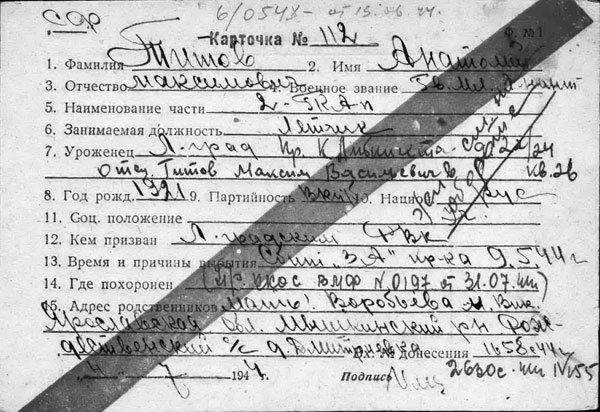 6/0548- от 13.06.44.
Карточка № 112 Ф. № 1
1. Фамилия Титов 2. Имя Анатолий
3. Отчество Максимович 4. Военное звание Гв. Мл. Л-нант
5. Наименование части 2-ГКАП
6. Занимаемая должность Летчик
7. Уроженец Л.град Пр. К Либкнехта 22/24
Отец. Титов Максим Васильевич кв. 26
8. Год рожд. 1921 9. Партийность ВКП 10. Национ. рус
11. Соц. положение
12. Кем призван Л.градским РВК
13. Время и причины выбытия пр-ка 9.5 44 г
14. Где похоронен (Пр. УКОС ВМФ № 0197 от 31.07.44)
15. Адрес родственников Мать: Воробьева
Ярославской обл. Мышкинский р-н Рож-
дественский с/с д Дмитриевка Вх. № донесения 1658с-44г
4/7 1944 Подпись 2630с-44